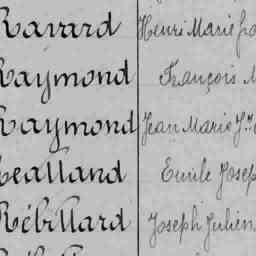 Ravard Henri Marie
Raymond François M
Raymond Jean Marie
Realland Emile Josep
Rébillard Joseph Julien